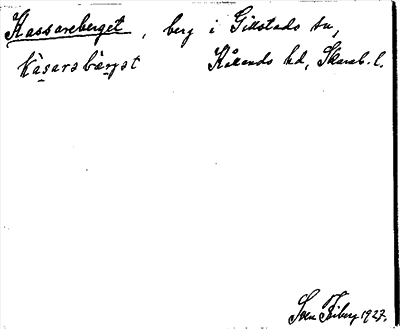 Kassareberget, berg i Gillstads sn,
kàsarsbärjət Kållands hd, Skarab. l.
Sven Friberg 1927.